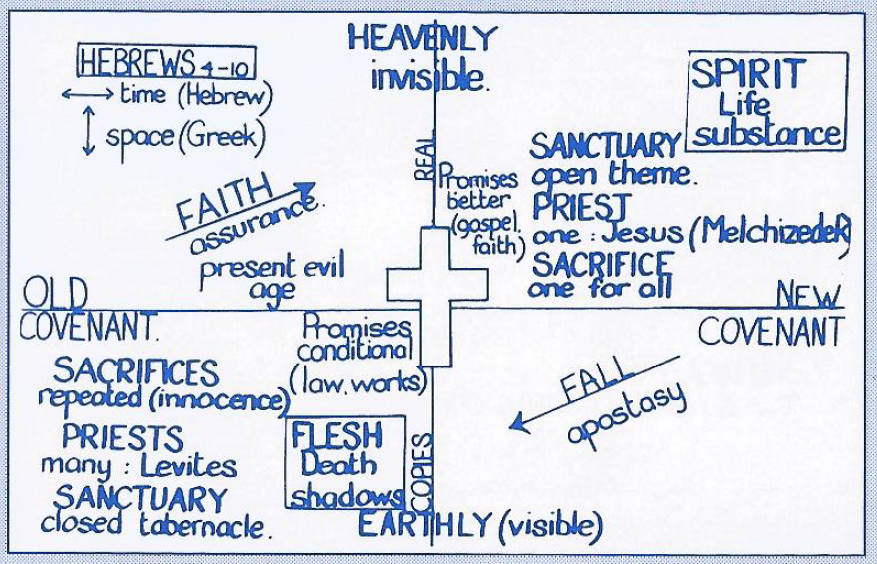 HEBREWS 4-10
time (Hebrew)
space (Greek)
HEAVENLY
invisible.
SPIRIT
Life
substance
REAL
Promises
better
(gospel.
faith)
SANCTUARY
open theme.
PRIEST
one : Jesus (Melchizedek)
SACRIFICE
one for all
FAITH
assurance.
present evil
age
OLD
COVENANT.
NEW
COVENANT
Promises
conditional
(law. works)
SACRIFICES
repeated (innocence)
PRIESTS
many : Levites
SANCTUARY
closed tabernacle.
FLESH
Death
shadows
COPIES
EARTHLY (visible)
FALL
apostasy